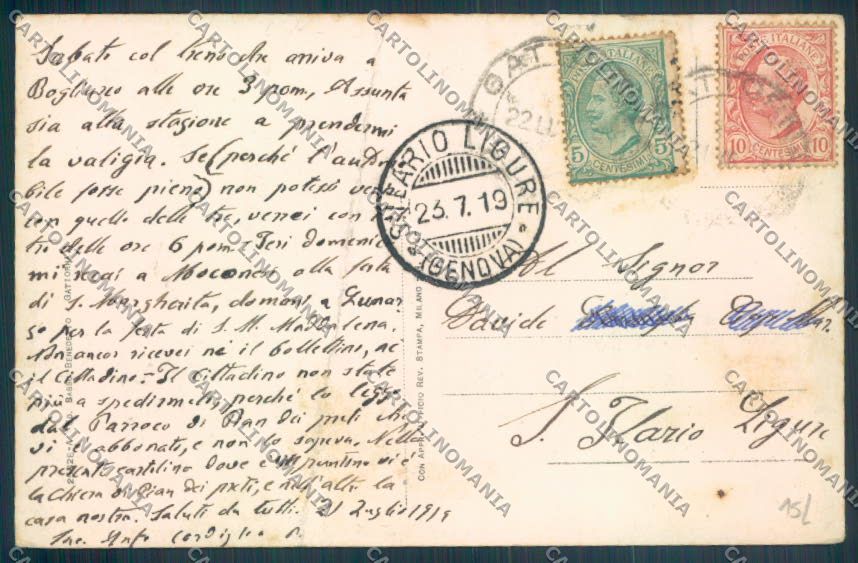 Sabato col treno che arriva a
Bogliasco alle ore 3 pom, Assunta
sia alla stazione a prendermi
la valigia. Se (perchè l'automo
bile fosse pieno) non potessi venire
con quello delle tre, verrei con
tro delle ore 6 pom. Ieri domenica
mi recai a Moconesi alla festa
di S. Margherita, domani a Lumar
zo per la festa di S. M. Maddalena.
Non ancor ricevei nè il bollettino, nè
il Cittadino. Il Cittadino non state
più a spedirmelo perchè lo leggo
dal Parroco di Pian dei preti che
vi è abbonato, e non lo sapeva. Nella
presente cartolina dove è l'impruntino vi è
la chiesa di Pian dei preti, e nell'altra la
casa nostra. Saluti da tutti. 21 Luglio 1919
Sac. Anto Cordiglia
GATTORNA
CON APPR. UFFICIO REV. STAMPA, MILANO
POSTE ITALIANE
5 CENTESIMI 5
POSTE ITALIANE
10 CENTESIMI 10
S. ILARIO LIGURE
23.7.19
(GENOVA)
Al Signor
Davide
S. Ilario Ligure
15/
CARTOLINOMANIA